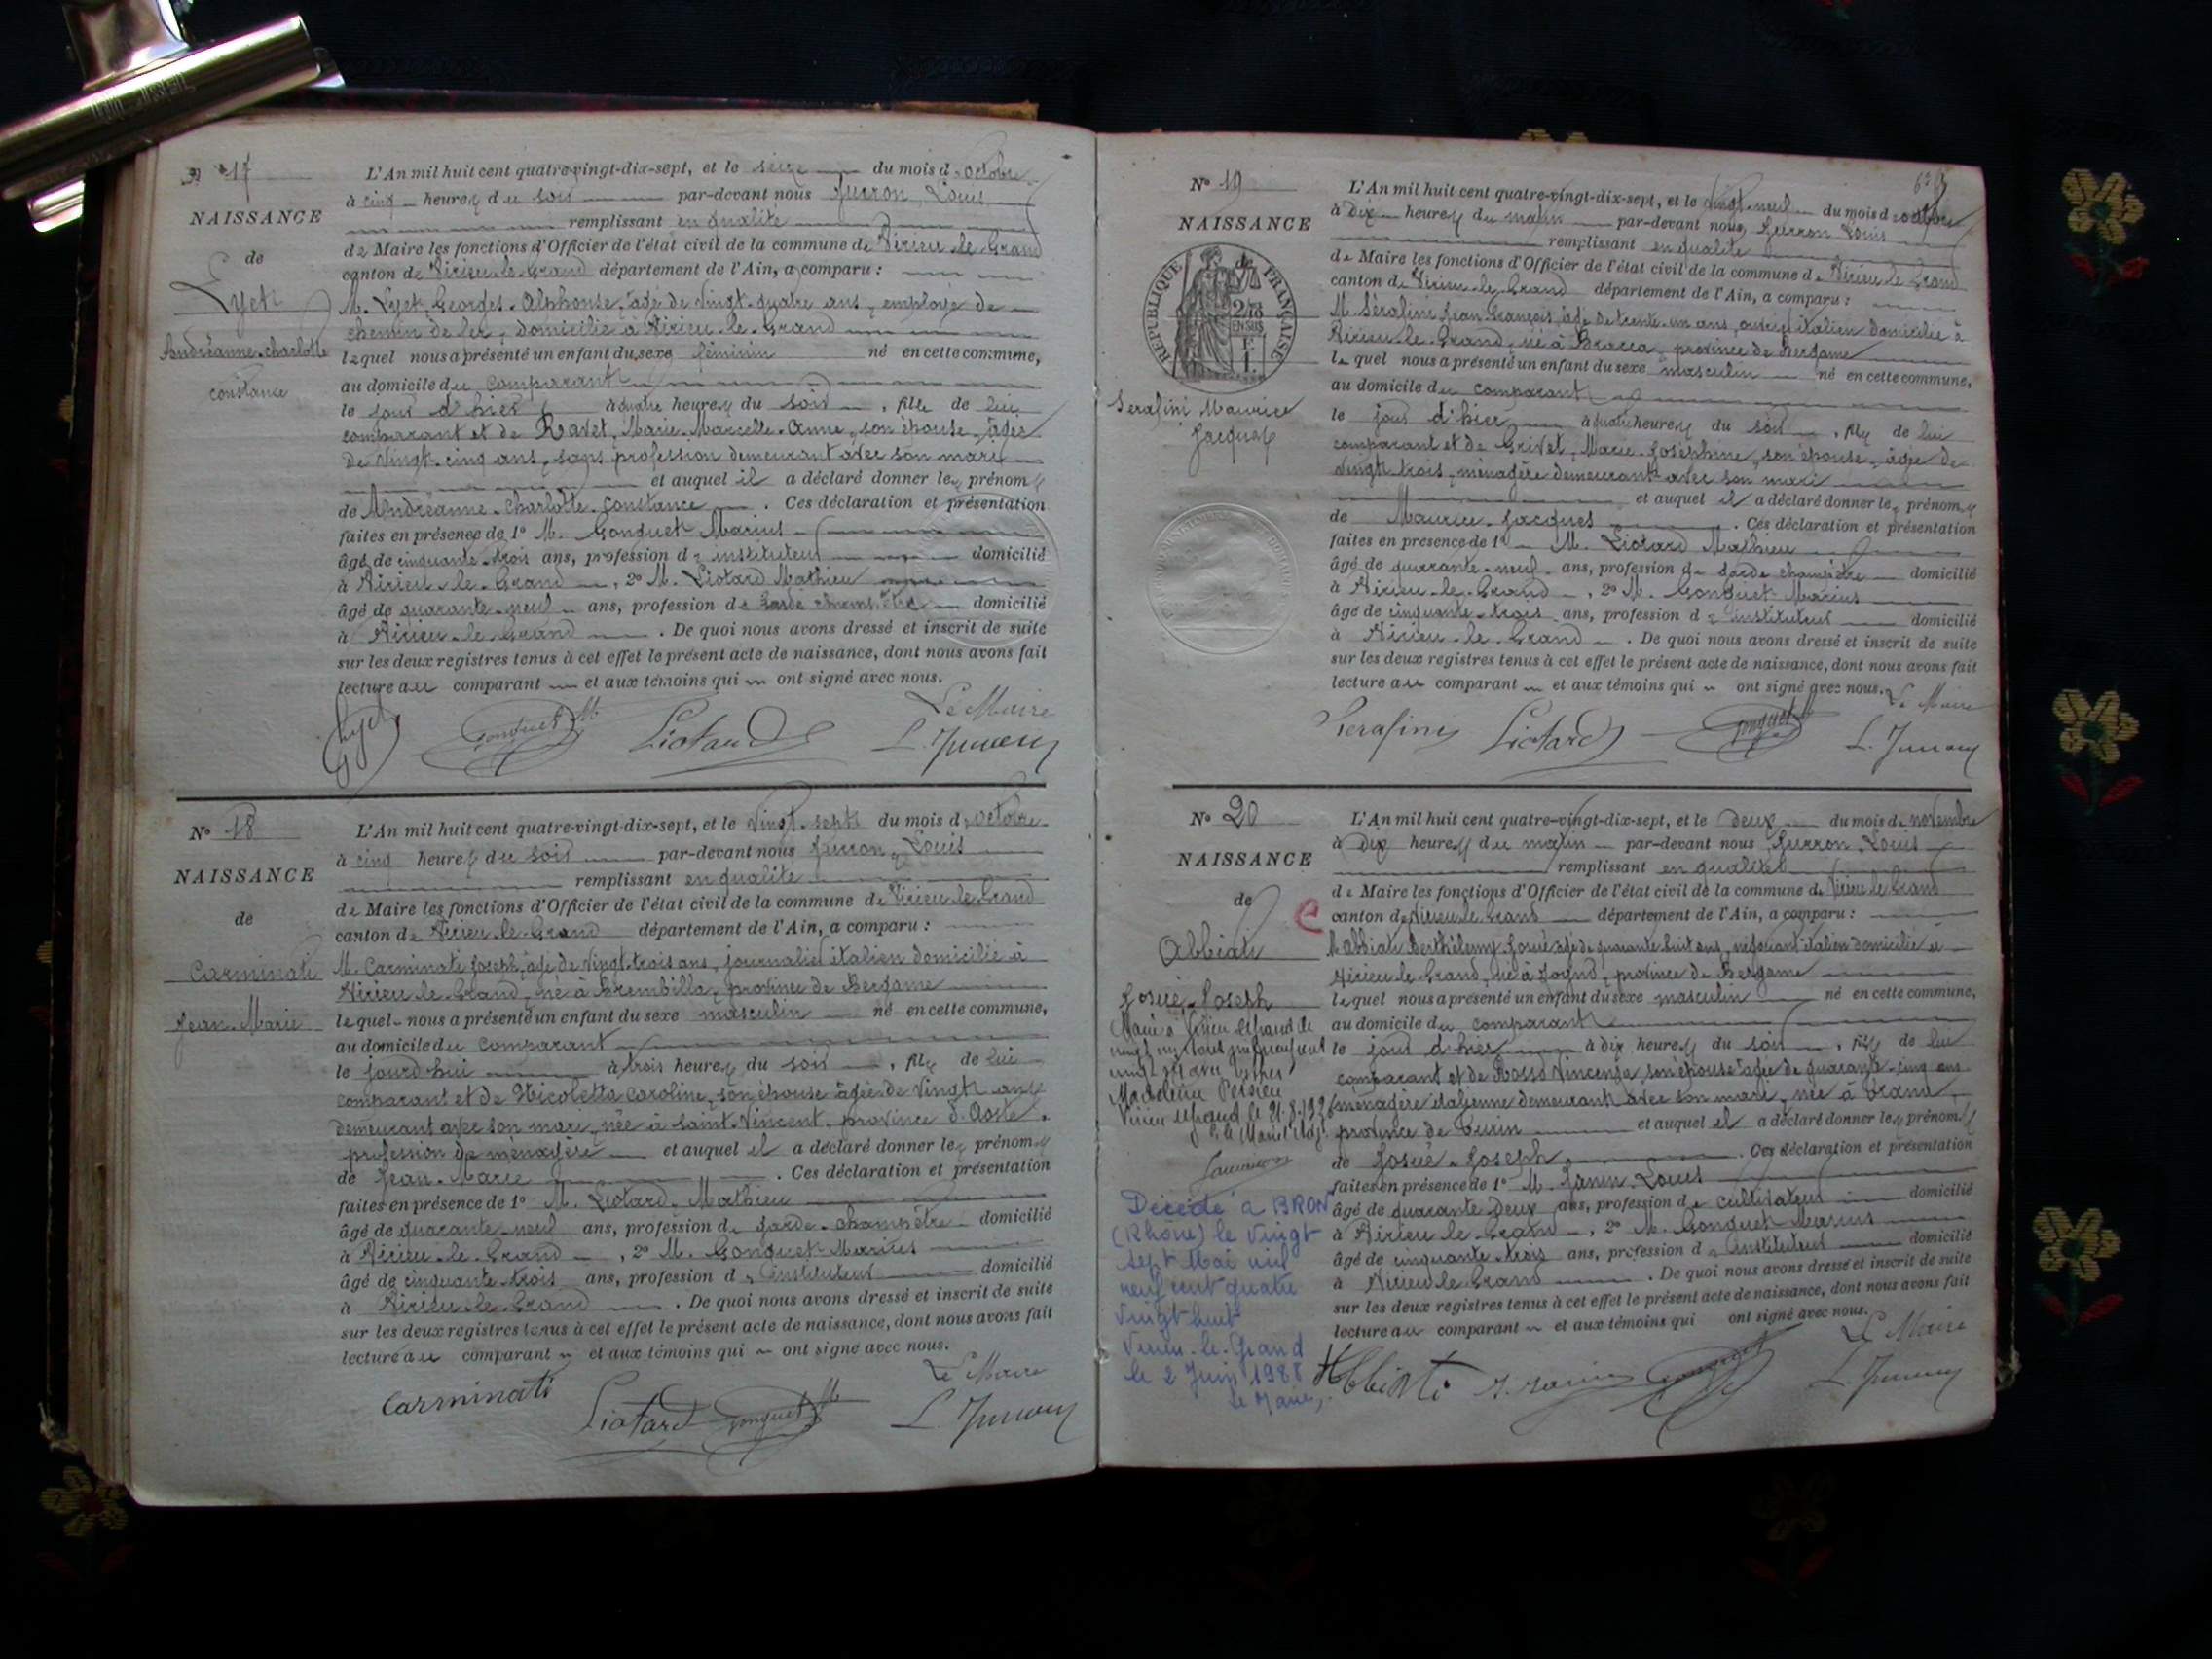 N° 17
NAISSANCE
de
Lyet
Andréanne-Charlotte
Constance
L'An mil huit cent quatre-vingt-dix-sept, et le seize du mois d'octobre
à cinq heures du soir par-devant nous Juvron, Louis
remplissant en qualité
de Maire les fonctions d'Officier de l'état civil de la commune de Virieu-le-Grand
canton de Virieu-le-Grand département de l'Ain, a comparu :
M. Lyet, Georges-Alphonse, âgé de vingt-quatre ans, employé de
chemin de fer, domicilié à Virieu-le-Grand
lequel nous a présenté un enfant du sexe féminin né en cette commune,
au domicile du comparant
le jour d'hier à quatre heures du soir, fille de lui
comparant et de Ravet, Marie-Marcelle-Anne, son épouse, âgée
de vingt-cinq ans, sans profession demeurant avec son mari
et auquel il a déclaré donner les prénoms
de Andréanne-Charlotte-Constance. Ces déclaration et présentation
faites en présence de 1° M. Gonguet Marius
âgé de cinquante-trois ans, profession d'instituteur domicilié
à Virieu-le-Grand, 2° M. Liotard Mathieu
âgé de quarante-neuf ans, profession de garde champêtre domicilié
à Virieu-le-Grand. De quoi nous avons dressé et inscrit de suite
sur les deux registres tenus à cet effet le présent acte de naissance, dont nous avons fait
lecture au comparant et aux témoins qui ont signé avec nous.
Le Maire
Lyet Gonguet M. Liotard
N° 18
NAISSANCE
de
Carminati
Jean-Marie
L'An mil huit cent quatre-vingt-dix-sept, et le vingt-sept du mois d'octobre
à cinq heures du soir par-devant nous Juvron, Louis
remplissant en qualité
de Maire les fonctions d'Officier de l'état civil de la commune de Virieu-le-Grand
canton de Virieu-le-Grand département de l'Ain, a comparu :
M. Carminati Joseph, âgé de vingt-trois ans, journalier italien domicilié à
Virieu-le-Grand, né à Brembilla, province de Bergame
lequel nous a présenté un enfant du sexe masculin né en cette commune,
au domicile du comparant
le jourd'hui à trois heures du soir, fils de lui
comparant et de Nicoletta Caroline, son épouse âgée de vingt ans
demeurant avec son mari, née à Saint-Vincent, province d'Aoste,
profession de ménagère et auquel il a déclaré donner les prénoms
de Jean-Marie. Ces déclaration et présentation
faites en présence de 1° M. Liotard-Mathieu
âgé de quarante-neuf ans, profession de garde-champêtre domicilié
à Virieu-le-Grand, 2° M. Gonguet Marius
âgé de cinquante-trois ans, profession d'instituteur domicilié
à Virieu-le-Grand. De quoi nous avons dressé et inscrit de suite
sur les deux registres tenus à cet effet le présent acte de naissance, dont nous avons fait
lecture au comparant et aux témoins qui ont signé avec nous.
Le Maire
Carminati Liotard Gonguet M
N° 19
NAISSANCE
de
RÉPUBLIQUE FRANÇAISE
2/10
EN SUS
Serafini Maurice
Jacques
L'An mil huit cent quatre-vingt-dix-sept, et le vingt-neuf du mois d'octobre
à dix heures du matin par-devant nous Juvron Louis
remplissant en qualité
de Maire les fonctions d'Officier de l'état civil de la commune de Virieu-le-Grand
canton de Virieu-le-Grand département de l'Ain, a comparu :
M. Sérafini Jean-François, âgé de trente-un ans, ouvrier italien domicilié à
Virieu-le-Grand, né à Bracca, province de Bergame
lequel nous a présenté un enfant du sexe masculin né en cette commune,
au domicile du comparant
le jour d'hier à quatre heures du soir, fils de lui
comparant et de Grivet, Marie-Joséphine, son épouse, âgée de
vingt-trois, ménagère demeurant avec son mari
et auquel il a déclaré donner les prénoms
de Maurice-Jacques. Ces déclaration et présentation
faites en présence de 1° M. Liotard Mathieu
âgé de quarante-neuf ans, profession de garde champêtre domicilié
à Virieu-le-Grand, 2° M. Gonguet Marius
âgé de cinquante-trois ans, profession d'instituteur domicilié
à Virieu-le-Grand. De quoi nous avons dressé et inscrit de suite
sur les deux registres tenus à cet effet le présent acte de naissance, dont nous avons fait
lecture au comparant et aux témoins qui ont signé avec nous.
Le Maire
Serafini Liotard Gonguet M
N° 20
NAISSANCE
de
Abbiati
Josué-Joseph
Marié à Virieu le Grand le
Madeleine
Virieu le Grand le 21.8.1926
Décédé à BRON
(Rhône) le vingt
sept Mai mil
neuf cent quatre
vingt huit
Virieu-le-Grand
le 2 Juin 1988
Le Maire,
L'An mil huit cent quatre-vingt-dix-sept, et le deux du mois de novembre
à dix heures du matin par-devant nous Juvron Louis
remplissant en qualité
de Maire les fonctions d'Officier de l'état civil de la commune de Virieu-le-Grand
canton de Virieu-le-Grand département de l'Ain, a comparu :
M. Abbiati Berthélemy Josué âgé de quarante-huit ans, négociant italien domicilié à
Virieu-le-Grand, né à province de Bergame
lequel nous a présenté un enfant du sexe masculin né en cette commune,
au domicile du comparant
le jour d'hier à dix heures du soir, fils de lui
comparant et de Rosso Vincenza, son épouse âgée de quarante-cinq ans
ménagère italienne demeurant avec son mari, née à
province de Turin et auquel il a déclaré donner les prénoms
de Josué-Joseph. Ces déclaration et présentation
faites en présence de 1° M. Janin Louis
âgé de quarante deux ans, profession de cultivateur domicilié
à Virieu-le-Grand, 2° M. Gonguet Marius
âgé de cinquante-trois ans, profession d'instituteur domicilié
à Virieu le Grand. De quoi nous avons dressé et inscrit de suite
sur les deux registres tenus à cet effet le présent acte de naissance, dont nous avons fait
lecture au comparant et aux témoins qui ont signé avec nous.
Le Maire
Abbiati